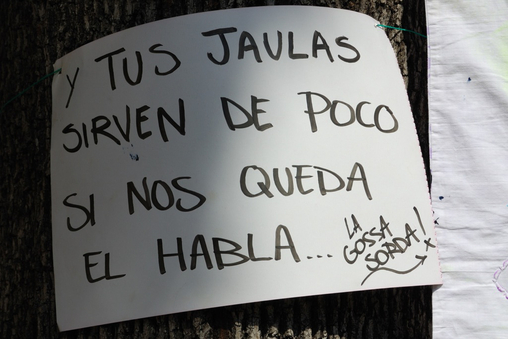 Y TUS JAULAS
SIRVEN DE POCO
SI NOS QUEDA
EL HABLA...
LA
GOSSA
SORDA!